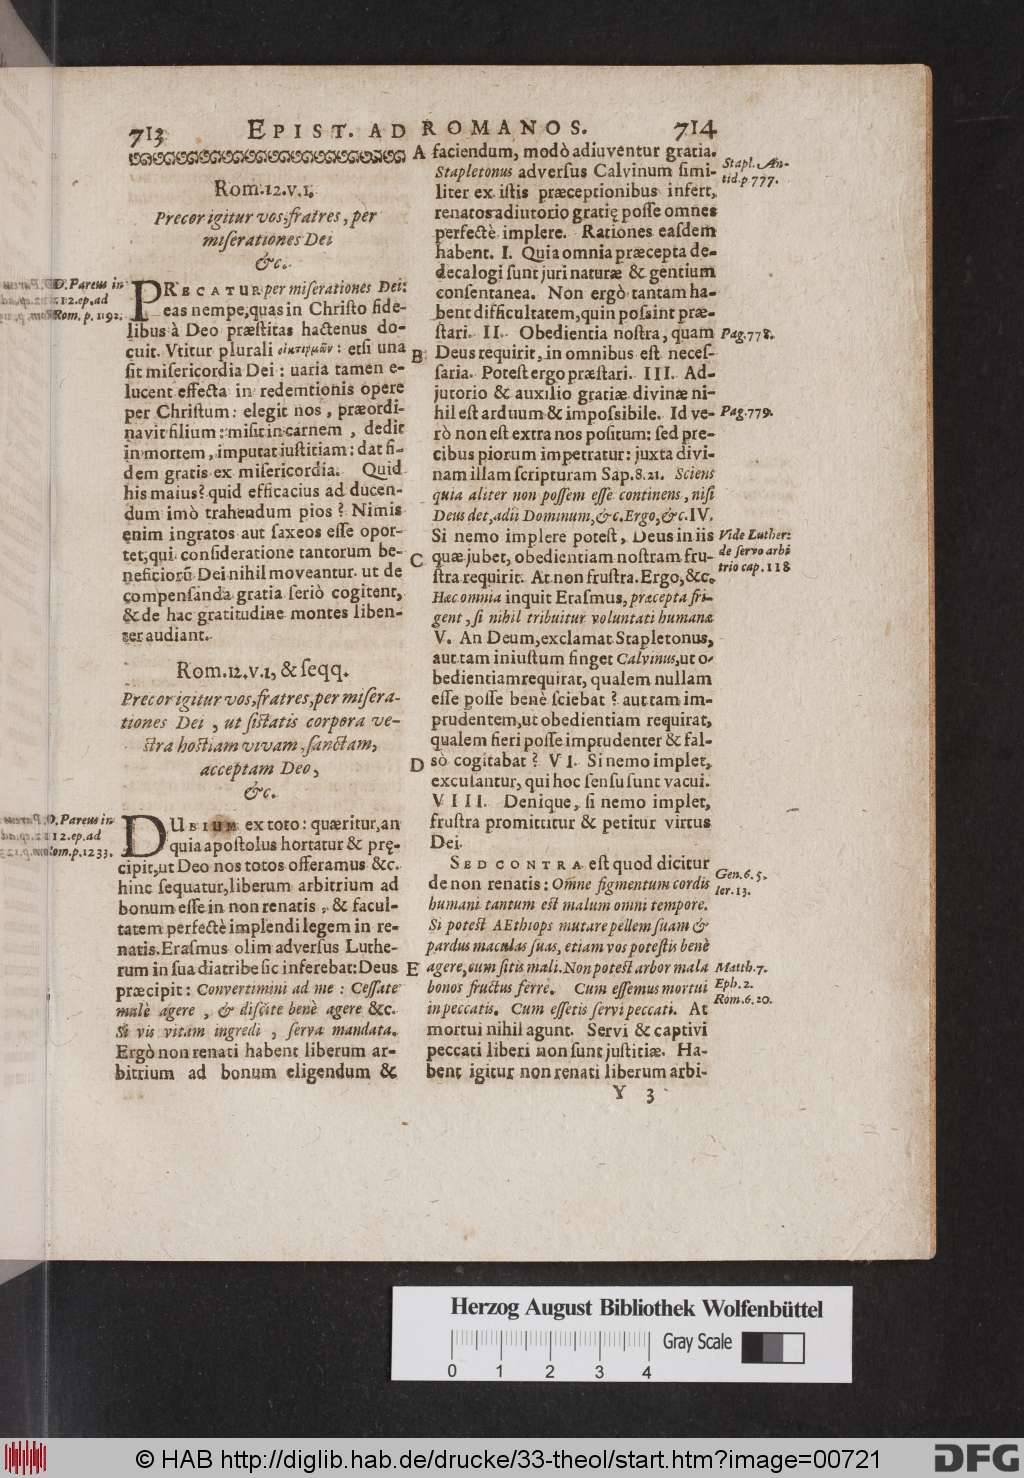 713 EPIST. AD ROMANOS. 714
Rom. 12. v. 1.
Precor igitur vos, fratres, per
miſerationes Dei
&c.
D. Pareus in
12. ep. ad
Rom. p. 1192.
PRECATUR per miſerationes Dei:
eas nempe, quas in Chriſto fide-
libus à Deo præſtitas hactenus do-
cuit. Vtitur plurali οἰκτιρμῶν: etſi una
ſit miſericordia Dei: uaria tamen e-
lucent effecta in redemtionis opere
per Chriſtum: elegit nos, præordi-
navit filium: miſit in carnem, dedit
in mortem, imputat iuſtitiam: dat fi-
dem gratis ex miſericordia. Quid
his maius? quid efficacius ad ducen-
dum imò trahendum pios? Nimis
ęnim ingratos aut ſaxeos eſſe opor-
tet, qui conſideratione tantorum be-
neficiorũ Dei nihil moveantur. ut de
compenſanda gratia ſeriò cogitent,
& de hac gratitudine montes liben-
ter audiant.
Rom. 12. v. 1, & ſeqq.
Precor igitur vos, fratres, per miſera-
tiones Dei, ut ſiſtatis corpora ve-
ſtra hoſtiam vivam, ſanctam,
acceptam Deo,
&c.
D. Pareus in
12. ep. ad
Rom. p. 1233.
DUBIUM ex toto: quæritur, an
quia apoſtolus hortatur & prę-
cipit, ut Deo nos totos offeramus &c.
hinc ſequatur, liberum arbitrium ad
bonum eſſe in non renatis, & facul-
tatem perfectè implendi legem in re-
natis. Eraſmus olim adverſus Luthe-
rum in ſua diatribe ſic inferebat: Deus
præcipit: Convertimini ad me: Ceſſate
malè agere, & diſcite benè agere &c.
Si vis vitam ingredi, ſerva mandata.
Ergò non renati habent liberum ar-
bitrium ad bonum eligendum &
A faciendum, modò adiuventur gratia.
Stapletonus adverſus Calvinum ſimi-
liter ex iſtis præceptionibus infert,
renatos adiutorio gratię poſſe omnes
perfectè implere. Rationes eaſdem
habent. I. Quia omnia præcepta de-
decalogi ſunt juri naturæ & gentium
conſentanea. Non ergò tantam ha-
bent difficultatem, quin poſsint præ-
ſtari. II. Obedientia noſtra, quam
B Deus requirit, in omnibus eſt neceſ-
ſaria. Poteſt ergo præſtari. III. Ad-
jutorio & auxilio gratiæ divinæ ni-
hil eſt arduum & impoſsibile. Id ve-
rò non eſt extra nos poſitum: ſed pre-
cibus piorum impetratur: juxta divi-
nam illam ſcripturam Sap. 8. 21. Sciens
quia aliter non poſſem eſſe continens, niſi
Deus det, adii Dominum, &c. Ergo, &c. IV.
Si nemo implere poteſt, Deus in iis
C quæ jubet, obedientiam noſtram fru-
ſtra requirit. At non fruſtra. Ergo, &c.
Hæc omnia inquit Eraſmus, præcepta fri-
gent, ſi nihil tribuitur voluntati humanæ
V. An Deum, exclamat Stapletonus,
aut tam iniuſtum finget Calvinus, ut o-
bedientiam requirat, qualem nullam
eſſe poſſe benè ſciebat? aut tam im-
prudentem, ut obedientiam requirat,
qualem fieri poſſe imprudenter & fal-
D sò cogitabat? VI. Si nemo implet,
excuſantur, qui hoc ſenſu ſunt vacui.
VIII. Denique, ſi nemo implet,
fruſtra promittitur & petitur virtus
Dei.
SED CONTRA eſt quod dicitur
de non renatis: Omne figmentum cordis
humani tantum eſt malum omni tempore.
Si poteſt AEthiops mutare pellem ſuam &
pardus maculas ſuas, etiam vos poteſtis benè
E agere, cum ſitis mali. Non poteſt arbor mala
bonos fructus ferre. Cum eſſemus mortui
in peccatis. Cum eſſetis ſervi peccati. At
mortui nihil agunt. Servi & captivi
peccati liberi non ſunt juſtitiæ. Ha-
bent igitur non renati liberum arbi-
Y 3
Stapl. An-
tid. p. 777.
Pag. 778.
Pag. 779.
Vide Luther:
de ſervo arbi
trio cap. 118
Gen. 6. 5.
Ier. 13.
Matth. 7.
Eph. 2.
Rom. 6. 20.
Herzog August Bibliothek Wolfenbüttel
Gray Scale
0 1 2 3 4
© HAB http://diglib.hab.de/drucke/33-theol/start.htm?image=00721
DFG